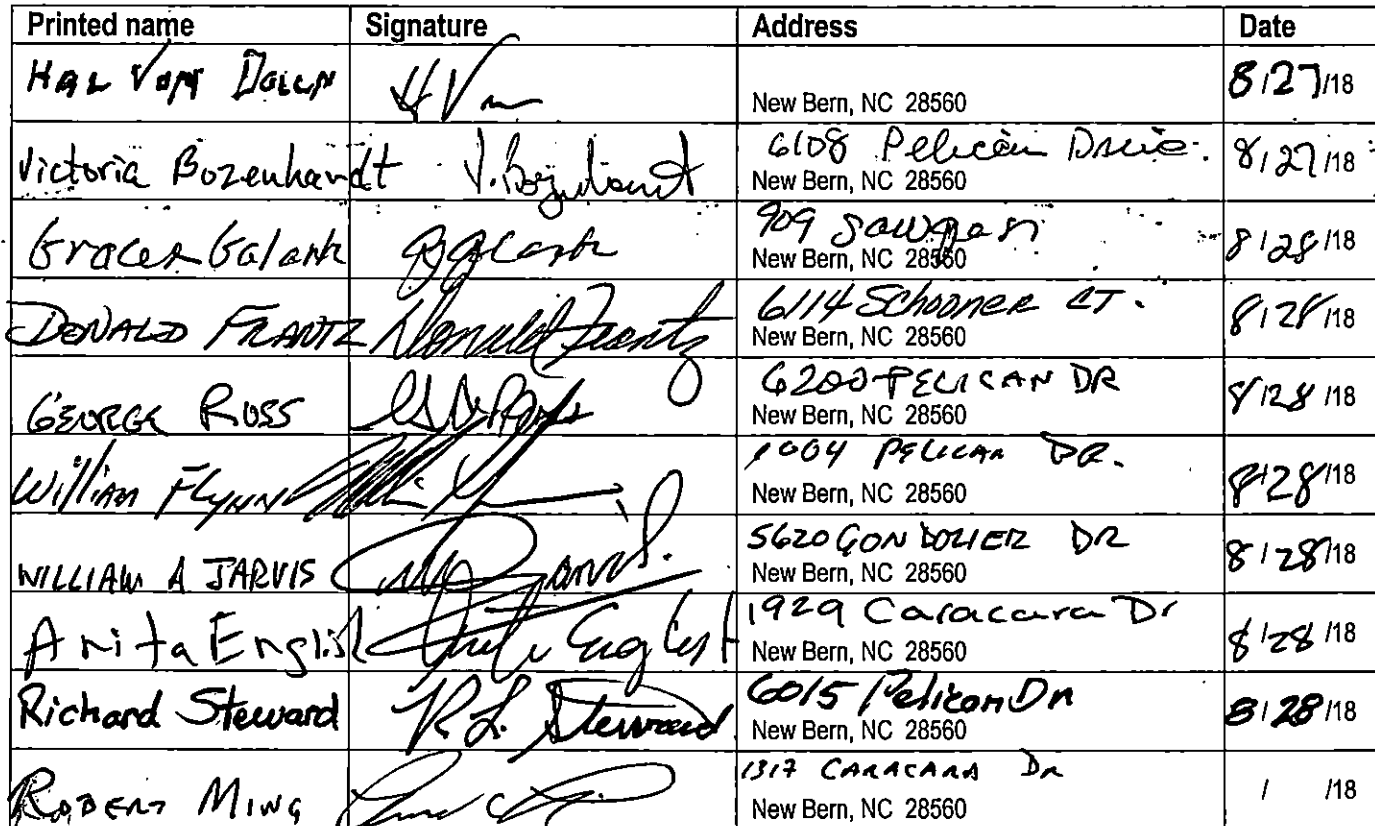 Printed name Signature Address Date
HAL VON
New Bern, NC 28560
8/27/18
Victoria Bozenhardt V. Bozenhardt
6108 Pelican Drive.
New Bern, NC 28560
8/27/18
Galank
909
New Bern, NC 28560
8/28/18
DONALD FRANTZ Donald Frantz
6114 Schooner CT.
New Bern, NC 28560
8/28/18
GEORGE ROSS
6200 PELICAN DR
New Bern, NC 28560
8/28/18
William FLYNN
1004 PELICAN DR.
New Bern, NC 28560
8/28/18
WILLIAM A JARVIS
5620 GONDOLIER DR
New Bern, NC 28560
8/28/18
Anita English
1929 Caracara Dr
New Bern, NC 28560
8/28/18
Richard Steward R. L. Steward
6015 Pelican Dr
New Bern, NC 28560
8/28/18
ROBERT MING
1317 CARACARA DR
New Bern, NC 28560
/ /18